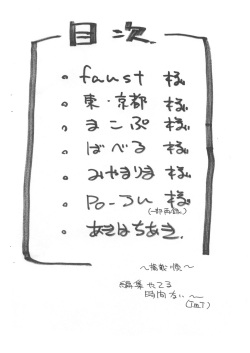 目次
。faust 様
。東・京都 様
。まこぷ 様
。ばべる 様
。みやまりま 様
。Po-ju 様
。あきはちあき.
〜掲載順〜
編集やてる
時間ない〜
(TmT)